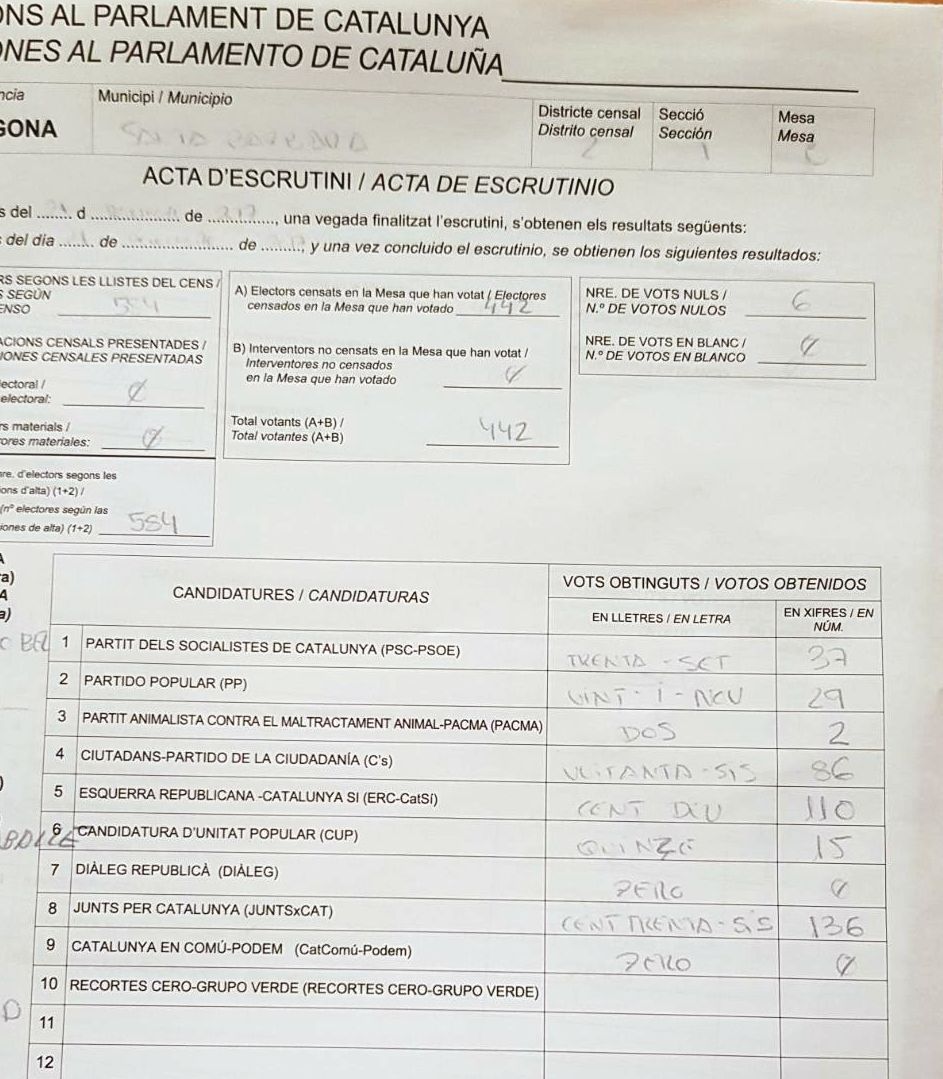 ONS AL PARLAMENT DE CATALUNYA
ONES AL PARLAMENTO DE CATALUÑA
ncia Municipi / Municipio Districte censal Secció Mesa
Distrito censal Sección Mesa
GONA 2 1
ACTA D'ESCRUTINI / ACTA DE ESCRUTINIO
s del ........ d ...................... de ..............., una vegada finalitzat l'escrutini, s'obtenen els resultats següents:
s del día ........ de ...................... de ..............., y una vez concluido el escrutinio, se obtienen los siguientes resultados:
RS SEGONS LES LLISTES DEL CENS /
S SEGÚN
ENSO
ACIONS CENSALS PRESENTADES /
IONES CENSALES PRESENTADAS
lectoral /
electoral: 0
rs materials /
ores materiales: 0
nre. d'electors segons les
ions d'alta) (1+2) /
(nº electores según las
iones de alta) (1+2) 584
A) Electors censats en la Mesa que han votat / Electores
censados en la Mesa que han votado 442
B) Interventors no censats en la Mesa que han votat /
Interventores no censados
en la Mesa que han votado 0
Total votants (A+B) /
Total votantes (A+B) 442
NRE. DE VOTS NULS /
N.º DE VOTOS NULOS 6
NRE. DE VOTS EN BLANC /
N.º DE VOTOS EN BLANCO 0
A
ra)
A
a)
CANDIDATURES / CANDIDATURAS VOTS OBTINGUTS / VOTOS OBTENIDOS
EN LLETRES / EN LETRA EN XIFRES / EN
NÚM.
1 PARTIT DELS SOCIALISTES DE CATALUNYA (PSC-PSOE) TRENTA-SET 37
2 PARTIDO POPULAR (PP) VINT-I-NOU 29
3 PARTIT ANIMALISTA CONTRA EL MALTRACTAMENT ANIMAL-PACMA (PACMA) DOS 2
4 CIUTADANS-PARTIDO DE LA CIUDADANÍA (C's) VUITANTA-SIS 86
5 ESQUERRA REPUBLICANA -CATALUNYA SI (ERC-CatSí) CENT DEU 110
6 CANDIDATURA D'UNITAT POPULAR (CUP) QUINZE 15
7 DIÀLEG REPUBLICÀ (DIÀLEG) ZERO 0
8 JUNTS PER CATALUNYA (JUNTSxCAT) CENT TRENTA-SIS 136
9 CATALUNYA EN COMÚ-PODEM (CatComú-Podem) ZERO 0
10 RECORTES CERO-GRUPO VERDE (RECORTES CERO-GRUPO VERDE)
11
12